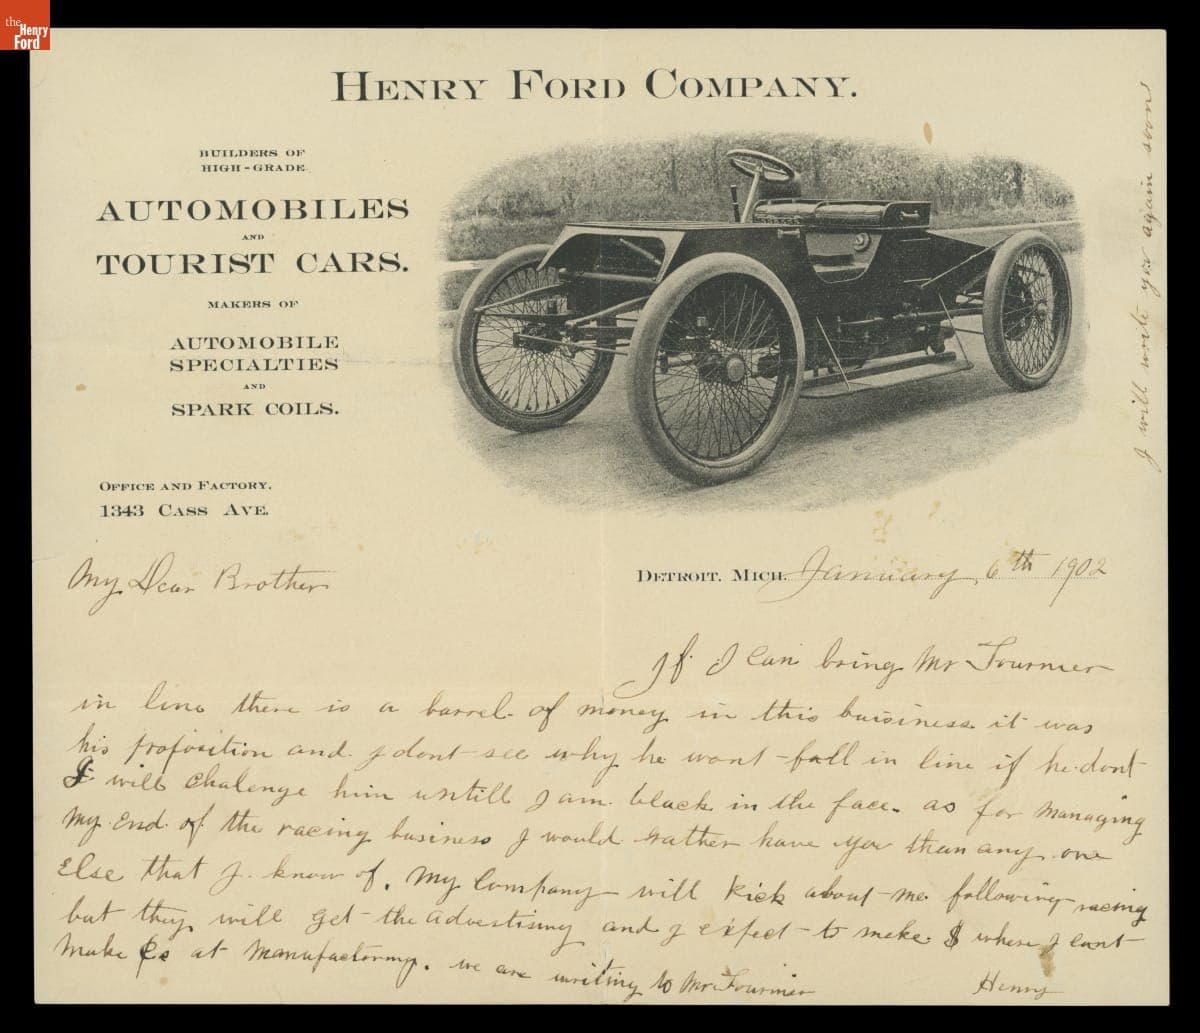 the
Henry
Ford
HENRY FORD COMPANY.
BUILDERS OF
HIGH-GRADE
AUTOMOBILES
AND
TOURIST CARS.
MAKERS OF
AUTOMOBILE
SPECIALTIES
AND
SPARK COILS.
OFFICE AND FACTORY.
1343 CASS AVE.
DETROIT. MICH. January 6th 1902
My Dear Brother
If I can bring Mr Fournier
in line there is a barrel of money in this buisiness it was
his proposition and I dont see why he wont fall in line if he dont
I will chalenge him untill I am black in the face. as for managing
my end of the racing business I would rather have you than any one
else that I know of. My Company will kick about me following racing
but they will get the Advertising and I expect to make $ where I cant
make ¢s at Manufactoring. we are writing to Mr Fournier
Henry
I will write you again soon